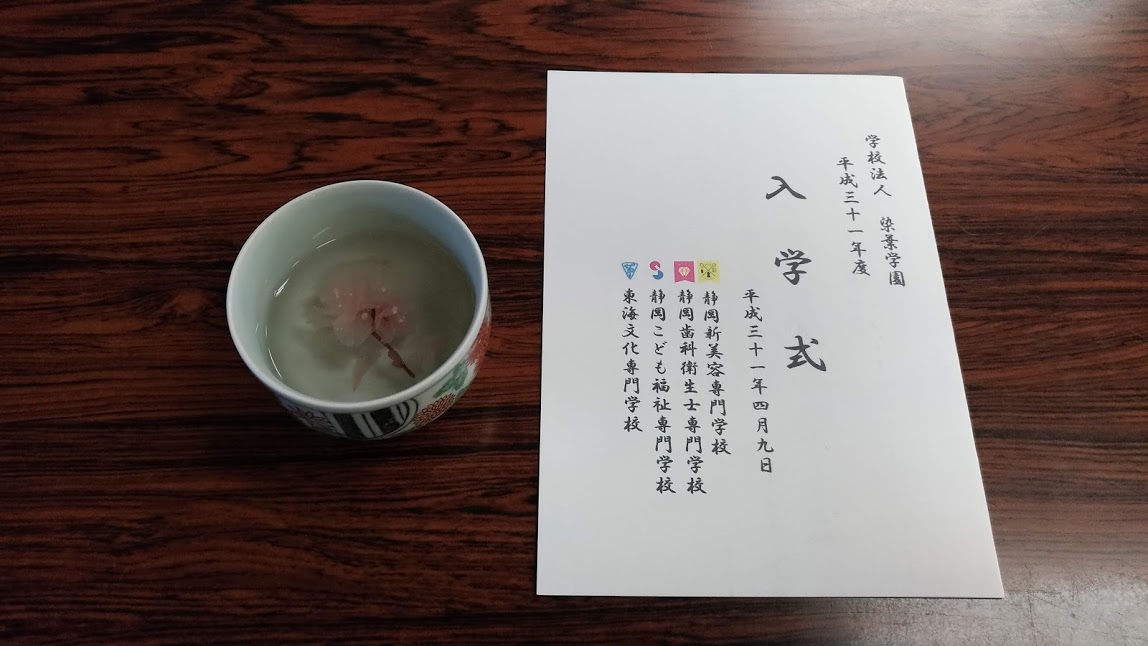 学校法人 染葉学園
平成三十一年度
入学式
平成三十一年四月九日
静岡新美容専門学校
静岡歯科衛生士専門学校
静岡こども福祉専門学校
東海文化専門学校